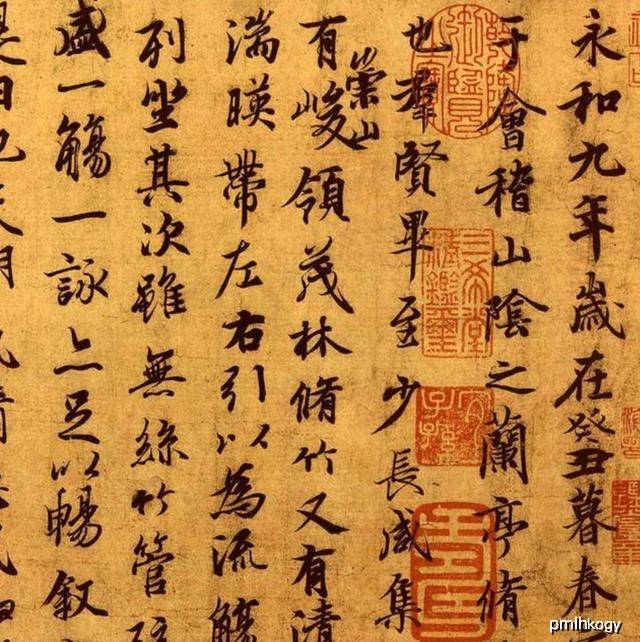 永和九年歲在癸丑暮春
于會稽山陰之蘭亭脩
也羣賢畢至少長咸集
崇山
有峻領茂林脩竹又有清
湍暎帶左右引以為流觴
列坐其次雖無絲竹管
盛一觴一詠亦足以暢叙
是日也天朗氣清
三希堂精鑑璽
宜子孫
pmlhkogy